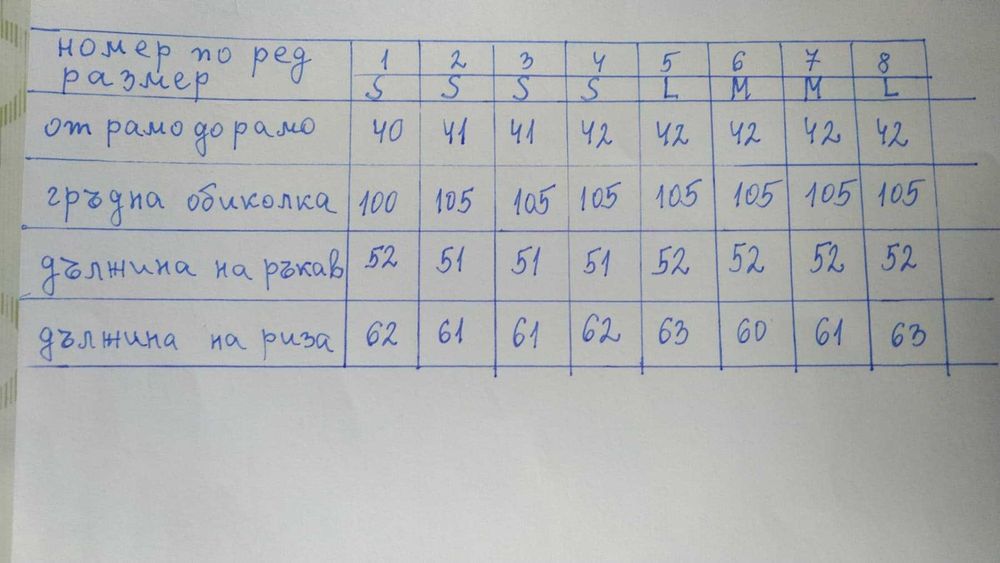 номер по ред 1 2 3 4 5 6 7 8
размер S S S S L M M L
от рамо до рамо 40 41 41 42 42 42 42 42
гръдна обиколка 100 105 105 105 105 105 105 105
дължина на ръкав 52 51 51 51 52 52 52 52
дължина на риза 62 61 61 62 63 60 61 63